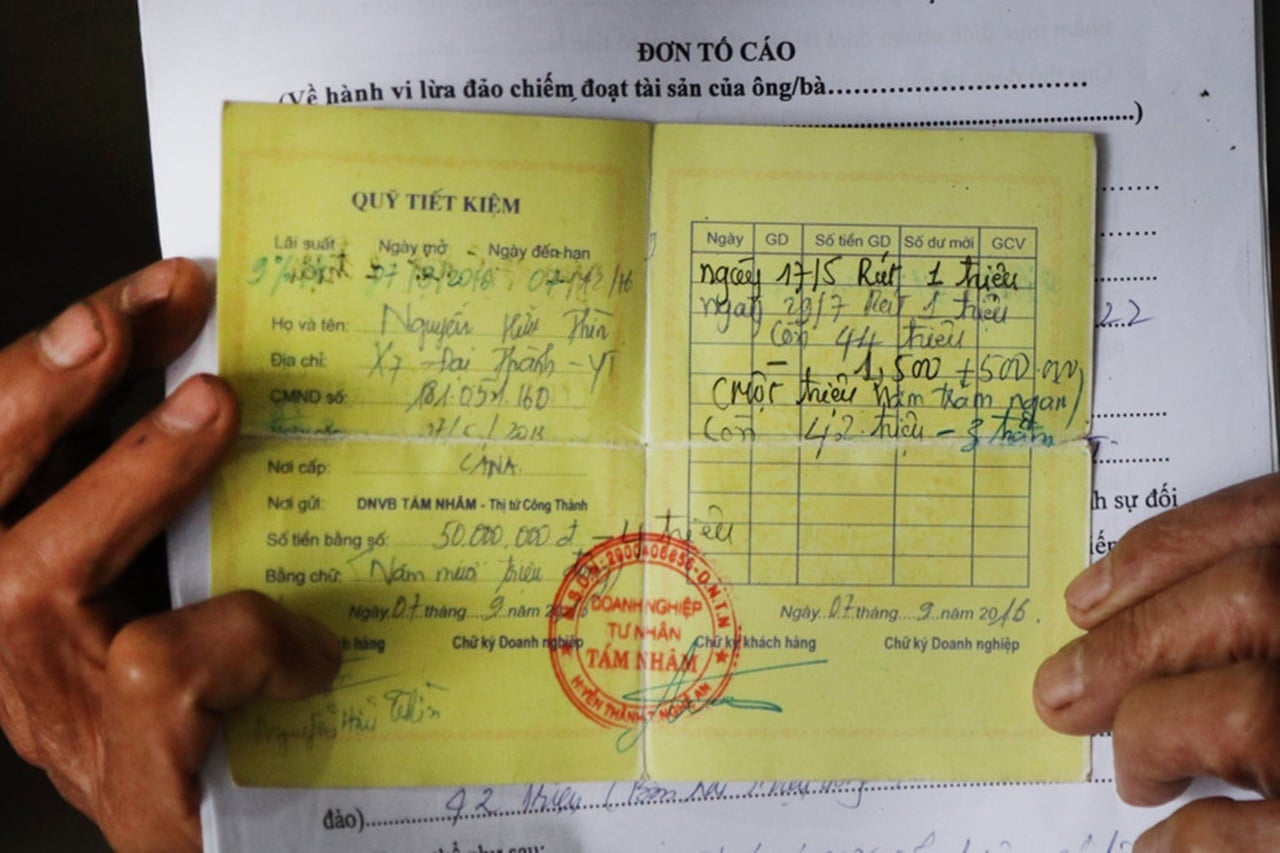 ĐƠN TỐ CÁO
(Về hành vi lừa đảo chiếm đoạt tài sản của ông/bà
QUỸ TIẾT KIỆM
Lãi suất Ngày mở - Ngày đến hạn
07/9/2016 07/12/16
Họ và tên: Nguyễn Hữu Thìn
Địa chỉ: X7 - Đại Thành - YT
CMND số: 181.051.160
Nơi cấp: CANA
Nơi gửi: DNVB TÁM NHÂM - Thị tứ Công Thành
Số tiền bằng số: 50.000.000đ - 4 triệu
Bằng chữ: Năm mươi triệu
Ngày 07 tháng 9 năm
hàng Chữ ký Doanh nghiệp
Nguyễn Hữu Thìn
Ngày GD Số tiền GD Số dư mới GCV
ngày 17/5 Rút 1 triệu
ngày 29/7 Rút 1 triệu
Còn 44 triệu
- 1,500 + 500.000
(Một triệu năm trăm ngàn)
Còn 42 triệu -
Ngày 07 tháng 9 năm 2016.
Chữ ký khách hàng Chữ ký Doanh nghiệp
M.S.D.N:2900406656-D.N.T.N
DOANH NGHIỆP
TƯ NHÂN
TÁM NHÂM
H.YÊN THÀNH-T.NGHỆ AN
22
h sự đối
đảo) 42 triệu (Bốn hai triệu đồng